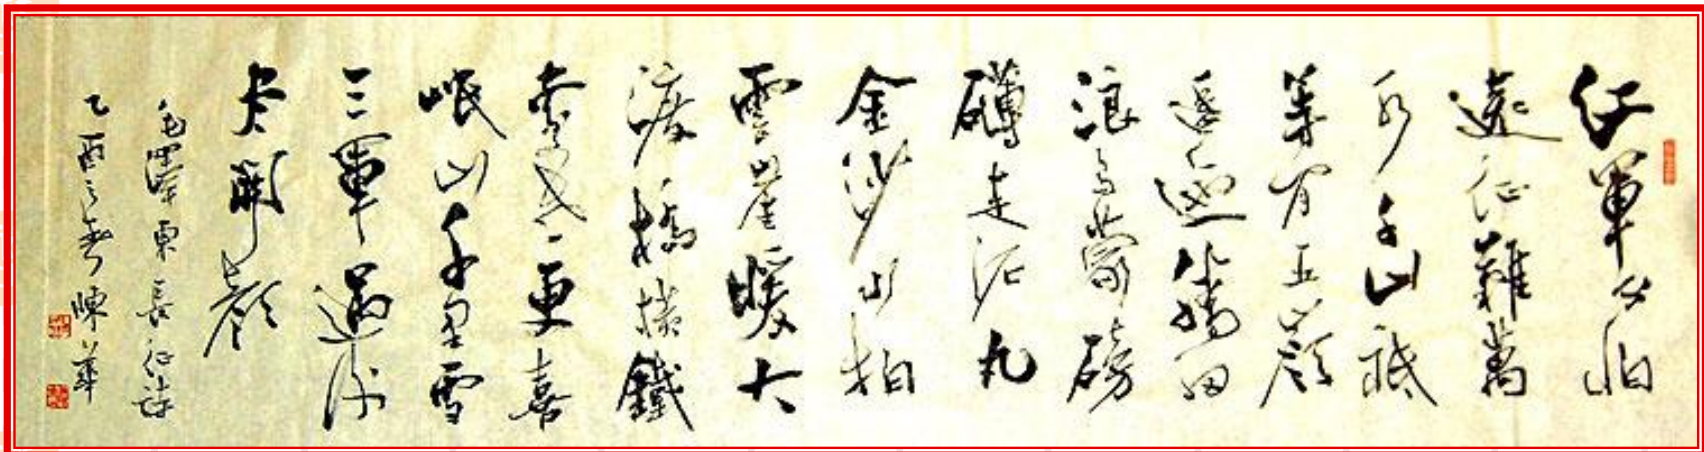 红軍不怕
遠征難萬
水千山祇
等閒五嶺
逶迤騰細
浪烏蒙磅
礴走泥丸
金沙水拍
雲崖暖大
渡橋橫鐵
索寒更喜
岷山千里雪
三軍過後
尽開顏
毛澤東長征詩
乙酉之春陳華